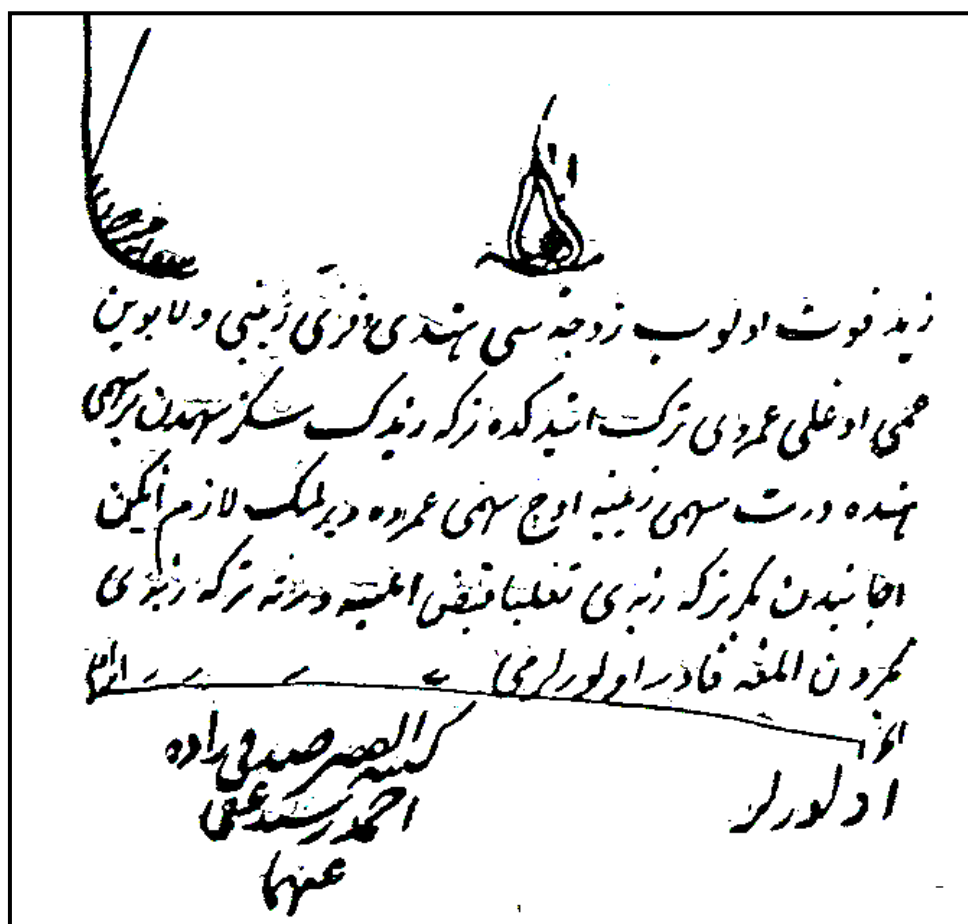 زيد فوت اولوب زوجه سی هندی و قزی زينبی و لابوين
عمی اوغلی عمروی ترك ايتدكده تركۀ زيدك سكز سهمدن بر سهمی
هنده درت سهمی زينبه اوچ سهمی عمروه ويرلمك لازم ايكن
اجانبدن بكر تركۀ زيدی تغلبا قبض ايلسه ورثه تركۀ زيدی
بكردن المغه قادر اولورلرمی
الجواب
اولورلر
كتبه الفقير صدقی زاده
احمد رشيد عفی
عنهما